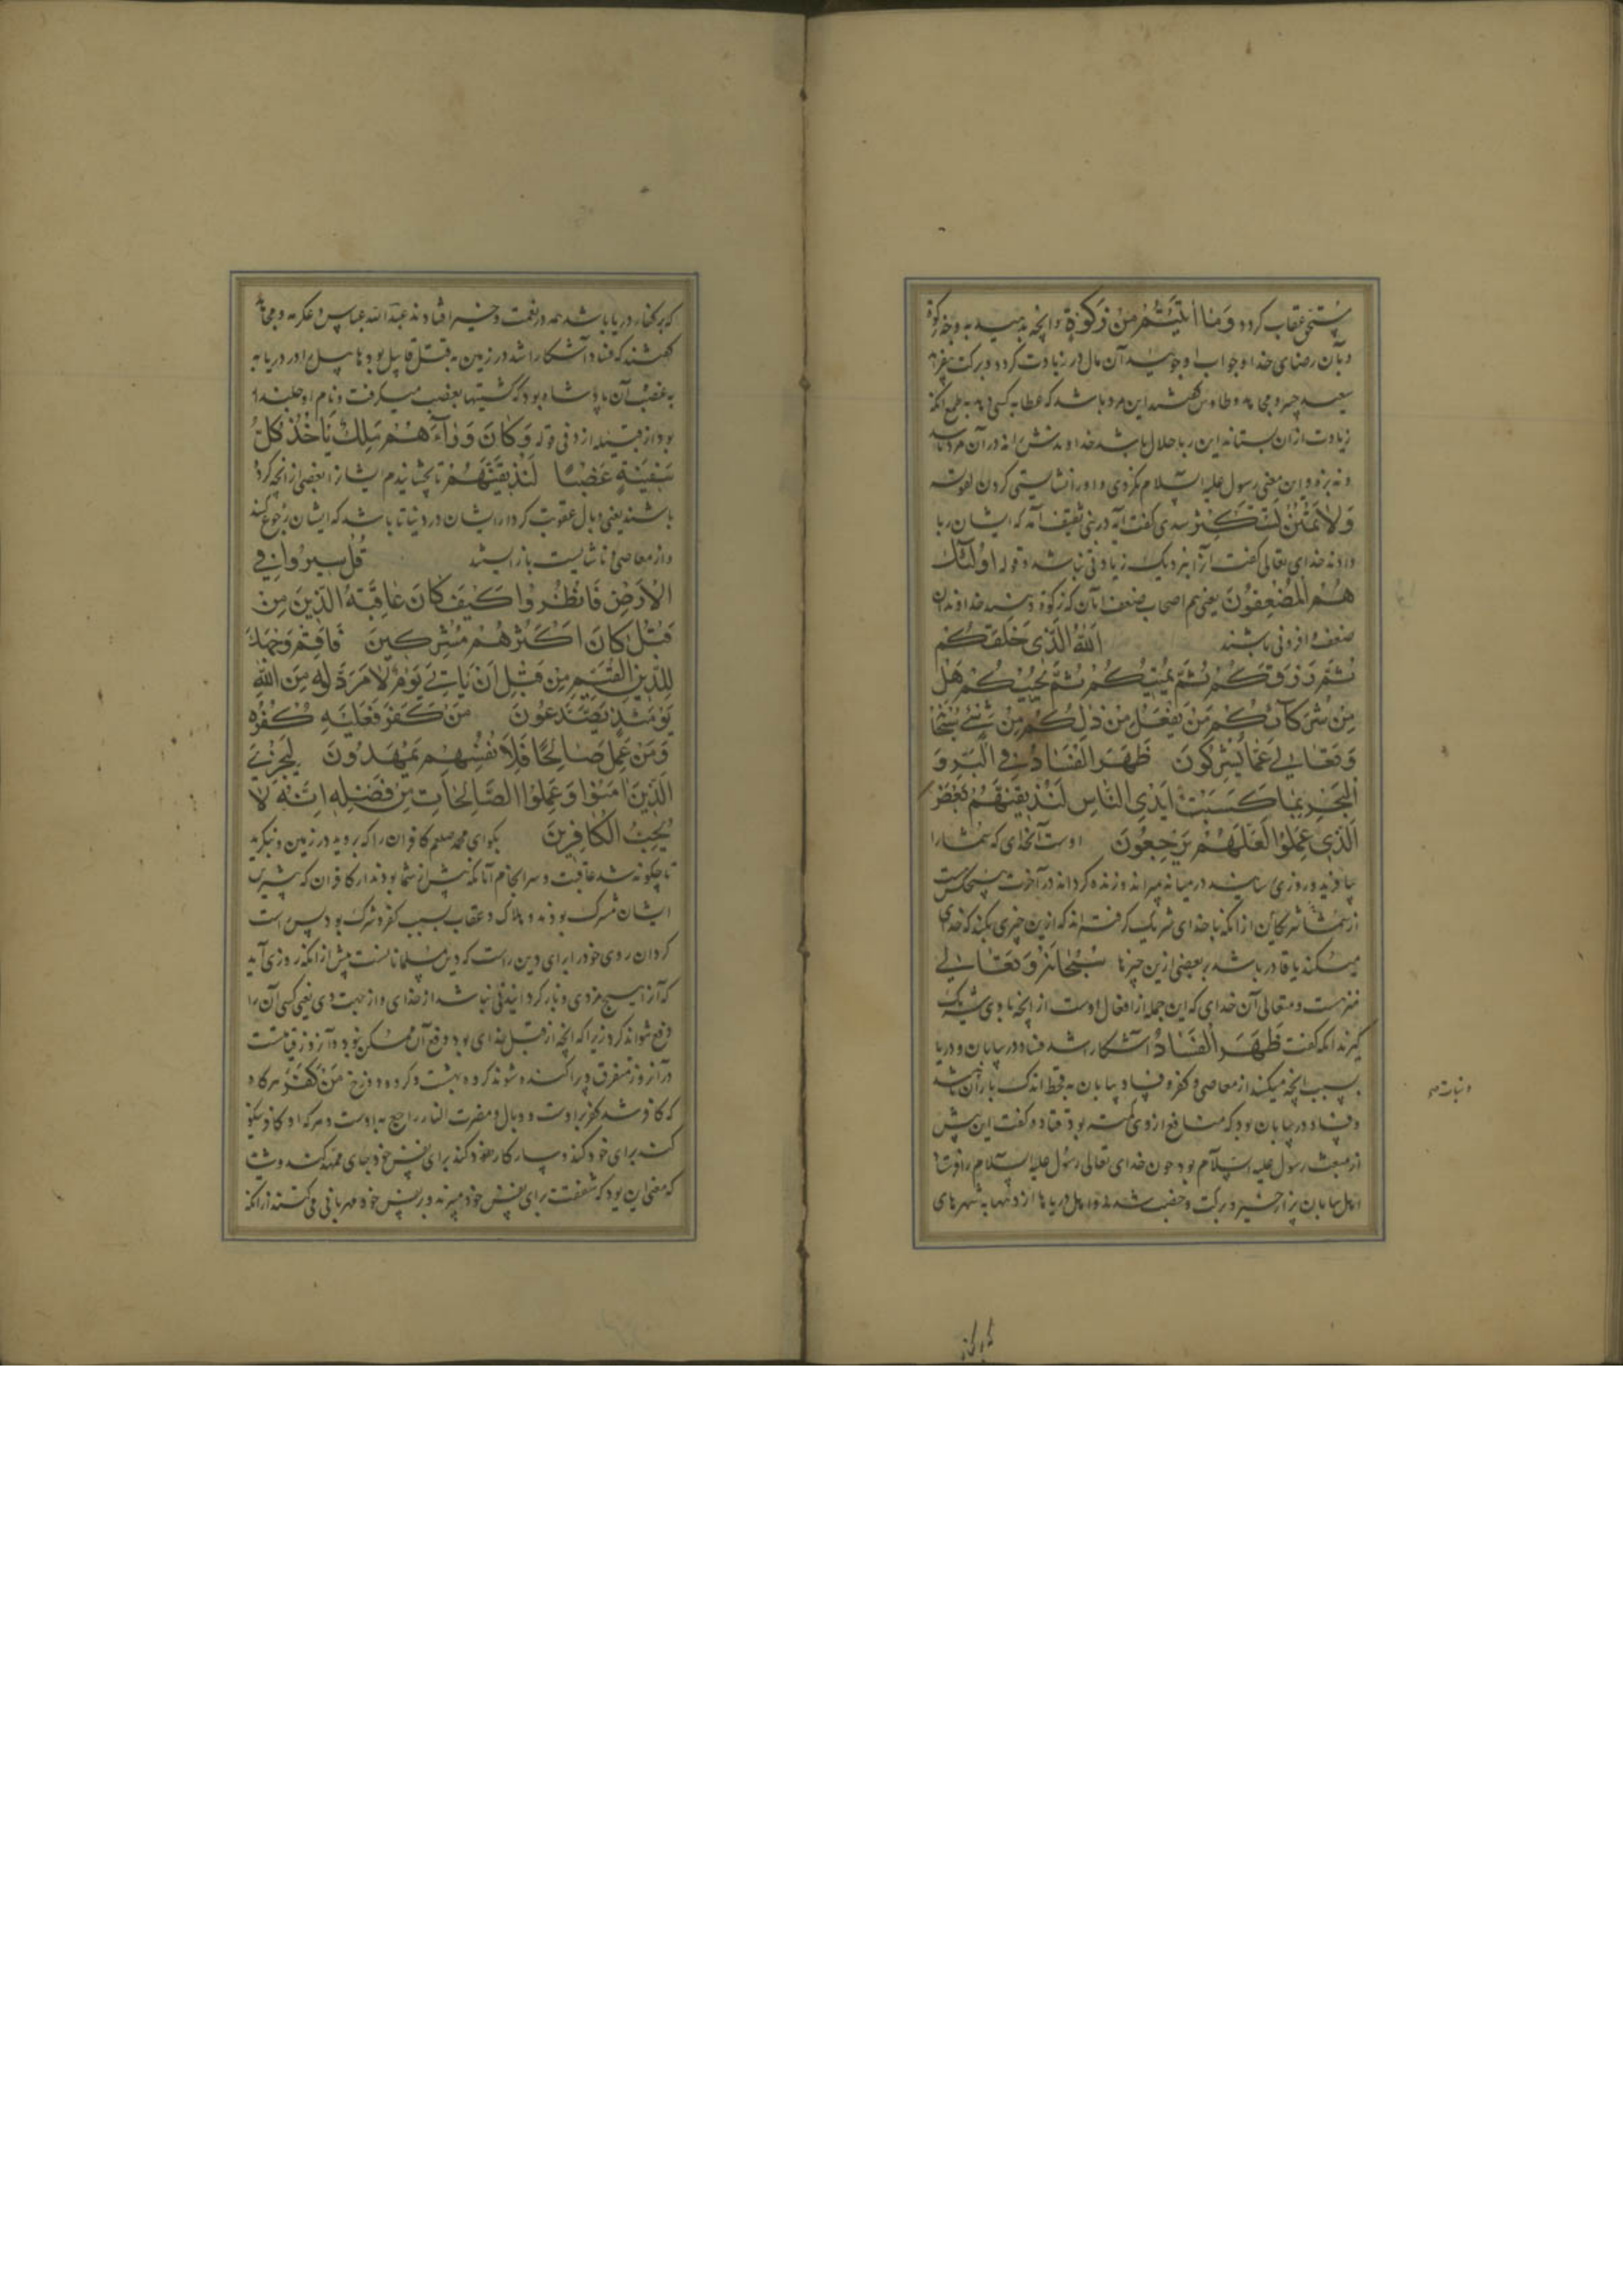 مستحق عقاب کردد وَمَا اٰتَیْتُمْ مِنْ زَکٰوةٍ وانچه بدهید به وجه زکوة
وبآن رضای خدا وجواب او جویید آن مال در زیادت کردد وبرکت
سعید جبیر ومجاهد وطاوس کفتند این مرد باشد که عطا به کسی دهد به طمع آنکه
زیادت ازان بستاند این ربا حلال باشد خداوندش را نه در آن مزد باشد
ونه بزه واین معنی رسول علیه السلام نکردی واورا نشایستی کردن لقوله
وَلَا تَمْنُنْ تَسْتَكْثِرُ سدی کفت آیه در بنی ثقیف آمد که ایشان ربا
دادند خدای تعالی کفت آنرا بنزدیک زیادتی نباشد وقوله اُولٰئِكَ
هُمُ الْمُضْعِفُونَ یعنی هم اصحاب ضعف آنان که زکوة دهند خداوندان
ضعف وافزونی باشند اَللّٰهُ الَّذِي خَلَقَكُمْ
ثُمَّ رَزَقَكُمْ ثُمَّ يُمِيتُكُمْ ثُمَّ يُحْيِيكُمْ هَلْ
مِنْ شُرَكَائِكُمْ مَنْ يَفْعَلُ مِنْ ذٰلِكُمْ مِنْ شَيْءٍ سُبْحَانَهُ
وَتَعَالٰي عَمَّا يُشْرِكُونَ ظَهَرَ الْفَسَادُ فِي الْبَرِّ وَ
الْبَحْرِ بِمَا كَسَبَتْ اَيْدِي النَّاسِ لِنُذِيقَهُمْ بَعْضَ
الَّذِي عَمِلُوا لَعَلَّهُمْ يَرْجِعُونَ اوست آنخدای که شمارا
بیافرید وروزی رسانید در میانه بمیراند وزنده کرداند در آخرت هیچکس است
از شما شرکاتان از آنکه با خدای شریک کرفته اند که ازین چیزی بکند که خدای
میکند یا قادر باشد بر بعضی ازین چیزها سُبْحَانَهُ وَتَعَالٰي
منزهست ومتعالی آن خدای که این جمله از افعال اوست از انچه با وی شریک
کیرند آنکه کفت ظَهَرَ الْفَسَادُ آشکارا شد فساد در بیابان ودریا
بسبب انچه میکنند از معاصی وکفر وفساد بیابان به قحط اندک باران باشد
وفساد در بیابان بود که منافع از وی کسسته بود قتاده کفت این پیش
از مبعث رسول علیه السلام بود چون خدای تعالی رسول علیه السلام را فرستاد
اهل بیابان پراز خیر وبرکت وخصب شدند واهل دریاها از دیهها به شهرهای
ونبات صح
که برکنار
که برکنار دریا باشد همه در نعمت وخیر افتادند عبد الله عباس وعکرمه ومجاهد
کفتند که فساد آشکارا شد در زمین به قتل قابیل بود هابیل را ودر دریا به
به غضب آن پادشاه بود که کشتیها بغصب میکرفت ونام او جلندا
بود از قبیله ازد فی قوله وَكَانَ وَرَاءَهُمْ مَلِكٌ يَأْخُذُ كُلَّ
سَفِينَةٍ غَصْبًا لَنُذِيقَنَّهُمْ تا بچشانیدم ایشانرا بعضی از انچه کرده
باشند یعنی وبال عقوبت کردار ایشان در دنیا تا باشد که ایشان رجوع کنند
واز معاصی وناشایست باز ایستند قُلْ سِيرُوا فِي
الْاَرْضِ فَانْظُرُوا كَيْفَ كَانَ عَاقِبَةُ الَّذِينَ مِنْ
قَبْلُ كَانَ اَكْثَرُهُمْ مُشْرِكِينَ فَاَقِمْ وَجْهَكَ
لِلدِّينِ الْقَيِّمِ مِنْ قَبْلِ اَنْ يَأْتِيَ يَوْمٌ لَا مَرَدَّ لَهُ مِنَ اللّٰهِ
يَوْمَئِذٍ يَصَّدَّعُونَ مَنْ كَفَرَ فَعَلَيْهِ كُفْرُهُ
وَمَنْ عَمِلَ صَالِحًا فَلِاَنْفُسِهِمْ يَمْهَدُونَ لِيَجْزِيَ
الَّذِينَ اٰمَنُوا وَعَمِلُوا الصَّالِحَاتِ مِنْ فَضْلِهِ اِنَّهُ لَا
يُحِبُّ الْكَافِرِينَ بکو ای محمد صلعم کافران را که بروید در زمین وبنکرید
تا چکونه شد عاقبت وسرانجام آنانکه پیش از شما بودند از کافران که بیشترین
ایشان مشرک بودند وهلاک وعقاب بسبب کفر وشرک بود پس راست
کردان روی خود را برای دین راست که دین مسلمانانست پیش از آنکه روزی آید
که آنرا هیچ مردی وباز کردانیدنی نباشد از خدای واز جهت وی یعنی کسی آن را
دفع نتواند کرد زیرا که انچه از قبل خدای بود دفع آن ممکن نبود وآنروز قیامتست
در آنروز متفرق وپراکنده شوند کروه بهشت وکروه دوزخ مَنْ كَفَرَ هر که او
که کافر شد کفر بر اوست ووبال ومضرت النار راجع به اوست وهر که او کار نیکو
کند برای خود کند وبسیار کار خود کند برای نفس خود جای ممهد کند
که معنی این بود که شفقت برای نفس خود میبرند وبر نفس خود مهربانی می کنند از آنکه